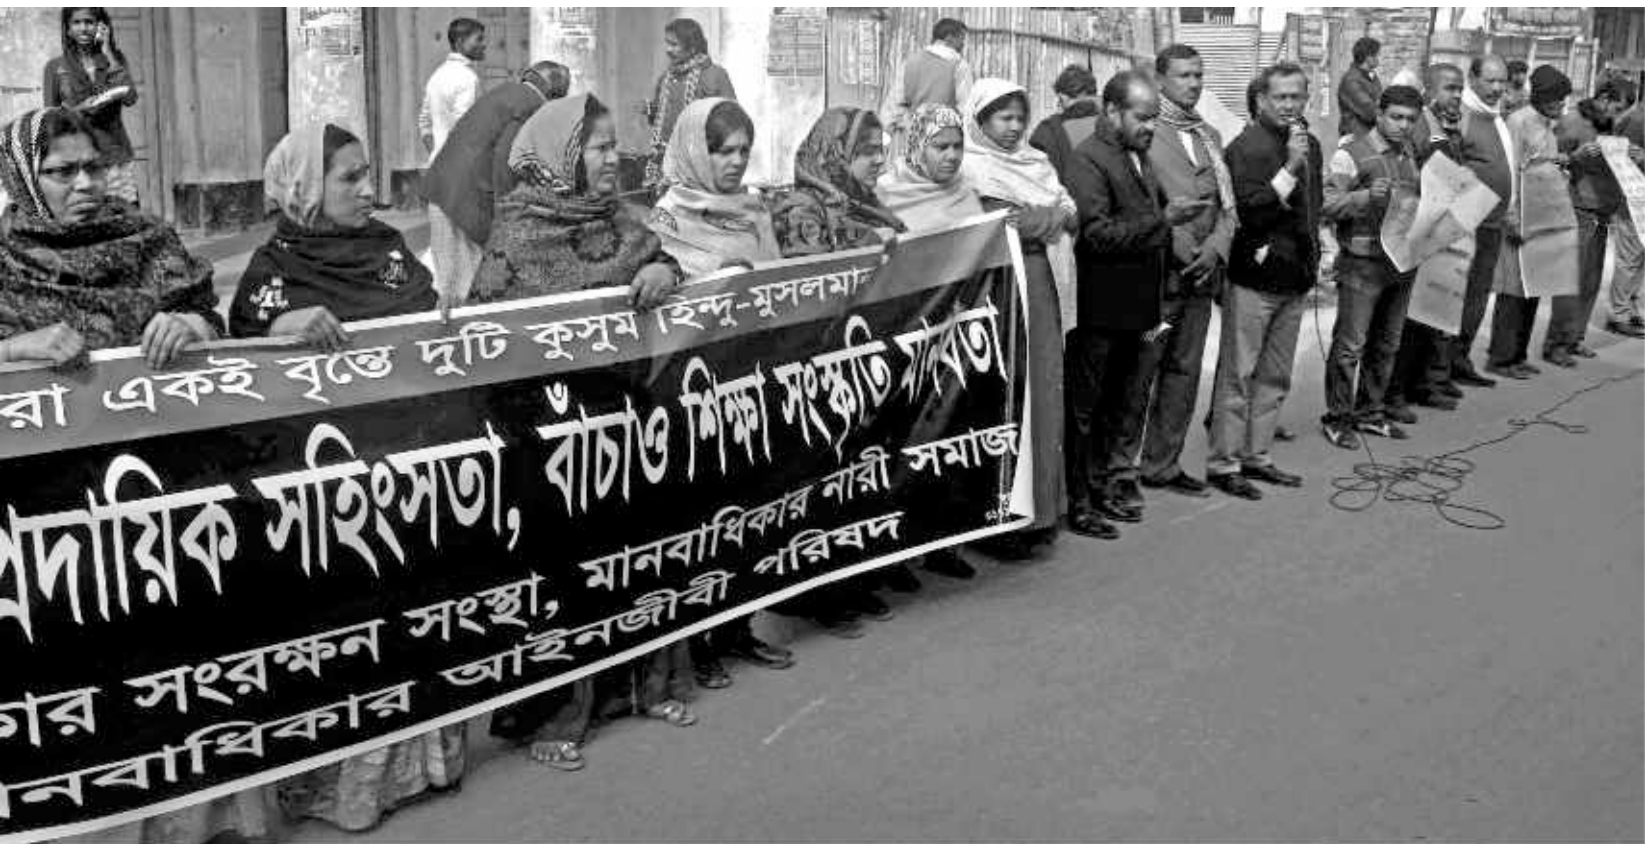 রা একই বৃন্তে দুটি কুসুম হিন্দু-মুসলমান
প্রদায়িক সহিংসতা, বাঁচাও শিক্ষা সংস্কৃতি মানবতা
কার সংরক্ষন সংস্থা, মানবাধিকার নারী সমাজ
মানবাধিকার আইনজীবী পরিষদ